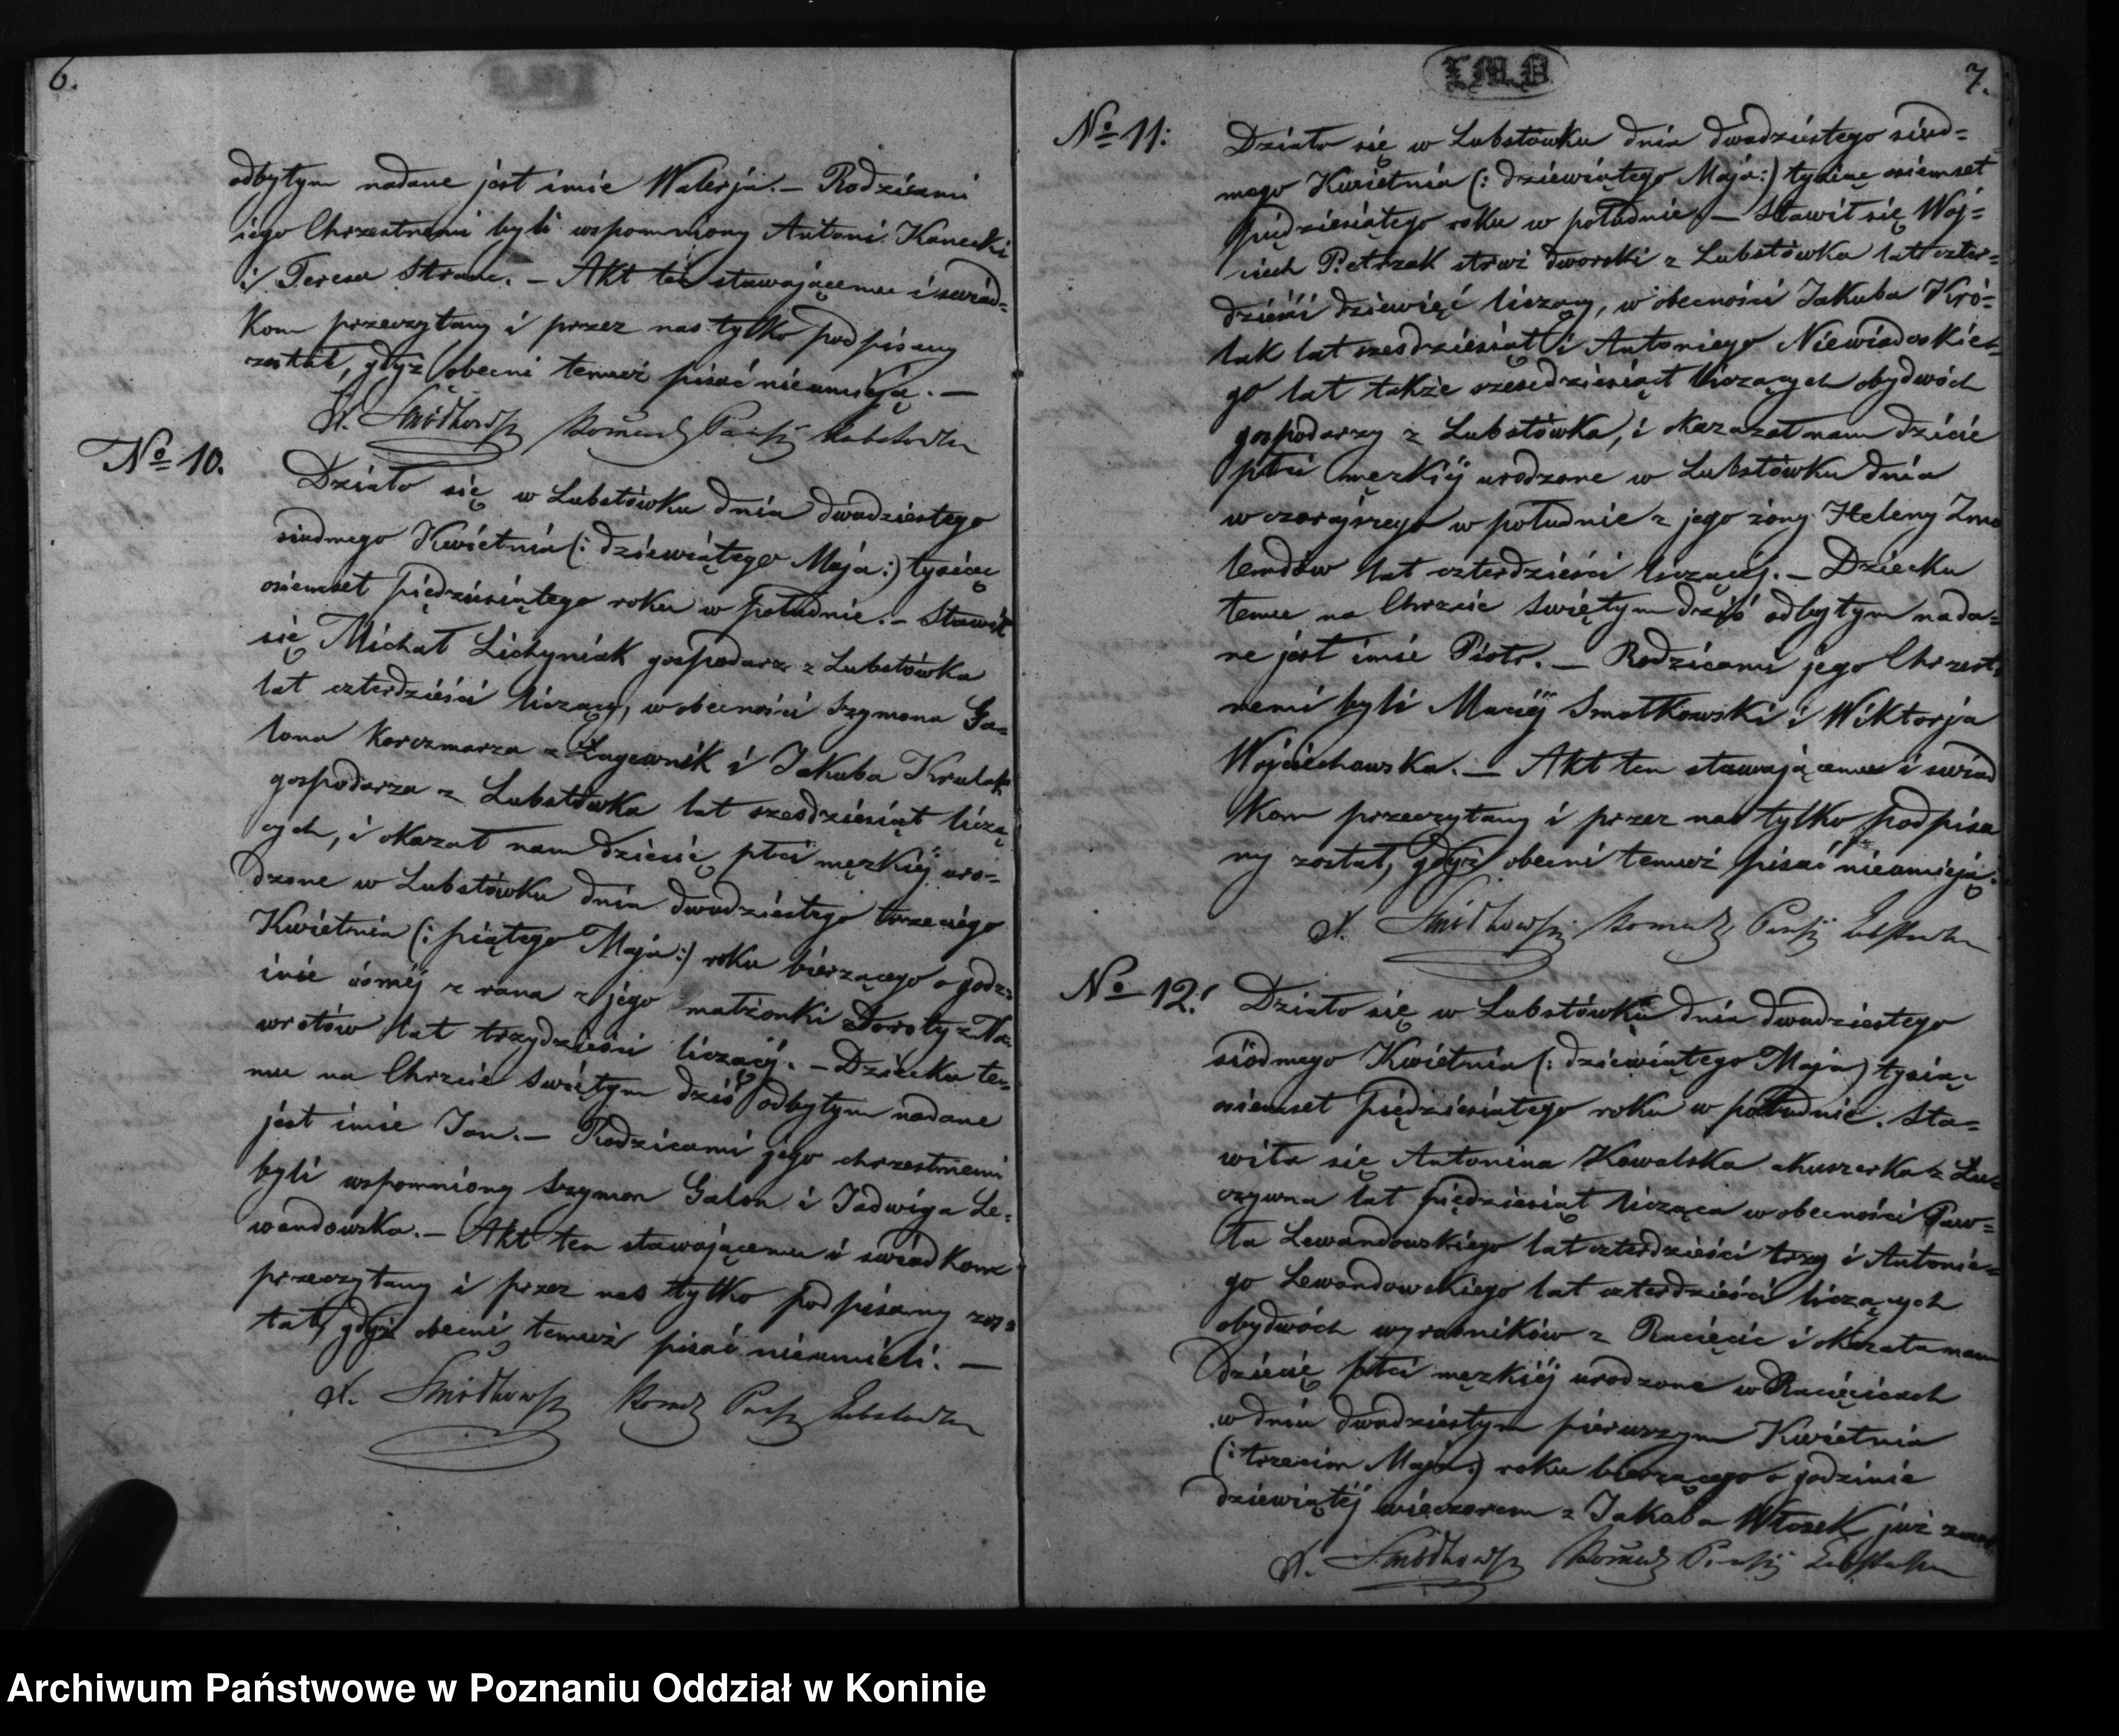 6.
odbytym nadane jest imie Walerja. — Rodzicami
jego Chrzestnemi byli wspomniony Antoni Kanecki
i Teresa — Akt ten stawającemu i świad=
kom przeczytany i przez nas tylko podpisany
został, gdyż obecni temuż pisać nieumieją. —
X.
No 10.
Działo się w Lubstówku dnia dwudziestego
siudmego Kwietnia (: dziewiątego Maja :) tysiąc
osiemset piędziesiątego roku w południe. — Stawił
się Michał Lichyniak gospodarz z Lubstówka
lat czterdzieści liczący, w obecności Szymona Ga=
lona Karczmarza z Łagiewnik i Jakuba Krulak
gospodarza z Lubstówka lat szesdziesiąt liczą
cych, i okazał nam dziecię płci męzkiéj uro=
dzone w Lubstówku dnia dwudziestego trzeciego
Kwietnia (: piątego Maja :) roku bierzącego o godz=
inie ósméj z rana z jego małżonki Doroty z Na=
wrotów lat trzydzieści liczącéj. — Dziecku te=
mu na Chrzcie Swiętym dziś odbytym nadane
jest imie Jan. — Rodzicami jego chrzestnemi
byli wspomniony Szymon Galon i Jadwiga Le=
wandowska. — Akt ten stawającemu i swiadkom
przeczytany i przez nas tylko podpisany zos=
tał, gdyż obecni temuż pisać nieumieli. —
X.
L.M.D.
7.
No 11:
Działo się w Lubstówku dnia dwudziestego siud=
mego Kwietnia (: dziewiątego Maja :) tysiąc osiemset
piędziesiątego roku w południe. — Stawił się Woj=
ciech Pietrzak stróż dworski z Lubstówka lat czter=
dzieści dziewięć liczący, w obecności Jakuba Kró=
lak lat szesdziesiąt i Antoniego Niewiadoskie=
go lat także szesdziesiąt liczących obydwóch
gospodarzy z Lubstówka, i okazał nam dziecie
płci męzkiéj urodzone w Lubstówku dnia
wczorajszego w południe z jego żony Heleny
lat czterdzieści liczącéj. — Dziecku
temu na Chrzcie Swiętym dziś odbytym nada=
ne jest imie Piotr. — Rodzicami jego Chrzest=
nemi byli Maciéj Smolkowski i Wiktorja
Wojciechowska. — Akt ten stawającemu i swiad
kom przeczytany i przez nas tylko podpisa
ny został, gdyż obecni temuż pisać nieumieją.
X.
No 12:
Działo się w Lubstówku dnia dwudziestego
siódmego Kwietnia (: dziewiątego Maja) tysiąc
osiemset piędziesiątego roku w południe. Sta=
wiła się Antonina Kowalska akuszerka z
lat piędziesiąt licząca w obecności Paw=
ła Lewandowskiego lat czterdzieści trzy i Antonie=
go Lewandowskiego lat czterdzieści liczących
obydwóch wyrobników z Racięcic i okazała nam
dziecię płci męzkiéj urodzone w Racięcicach
w dniu dwudziestym pierwszym Kwietnia
(: trzecim Maja :) roku bierzącego o godzinie
dziewiątéj wieczorem z Jakuba Włosek już
X.
Archiwum Państwowe w Poznaniu Oddział w Koninie